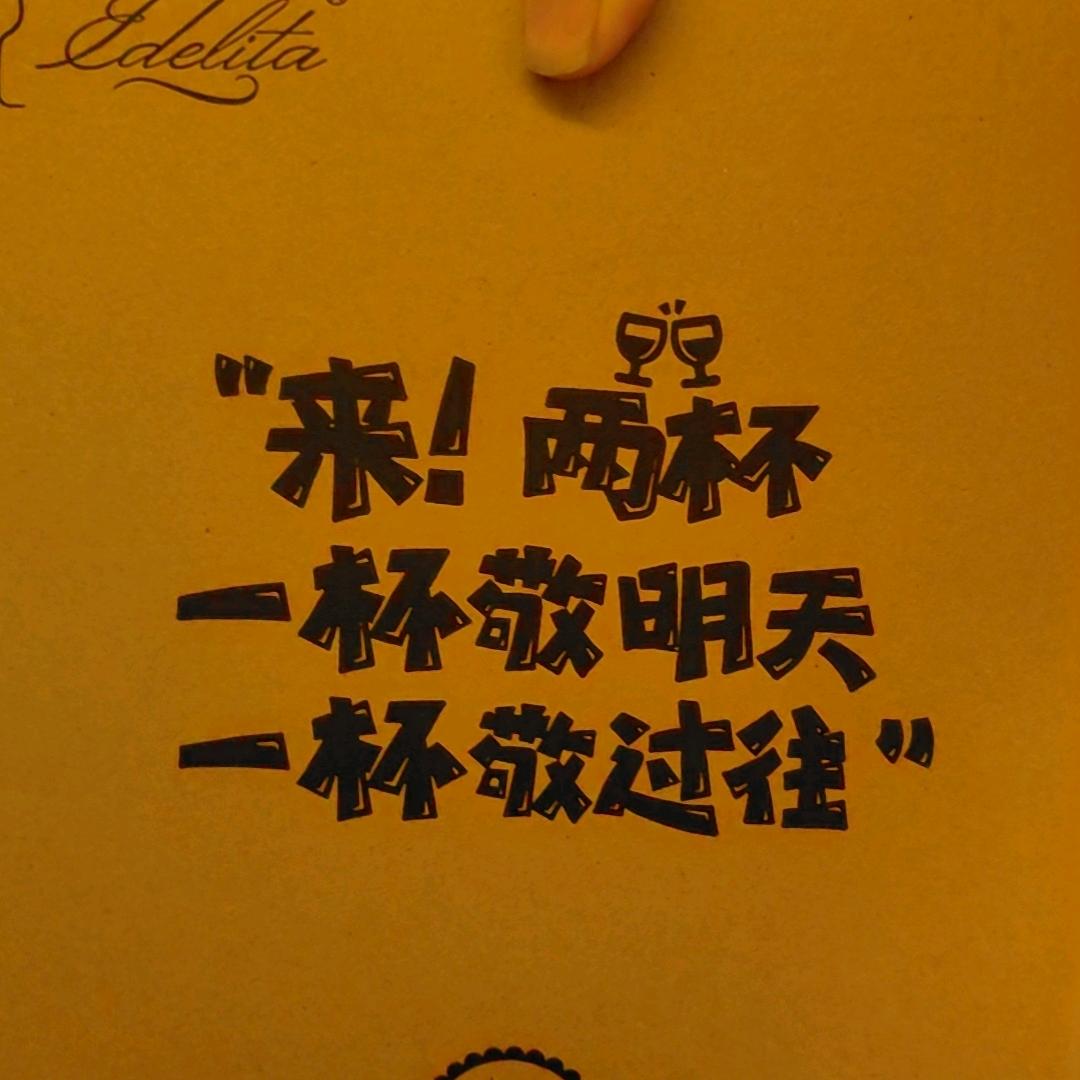 Idelita
"来！两杯
一杯敬明天
一杯敬过往"